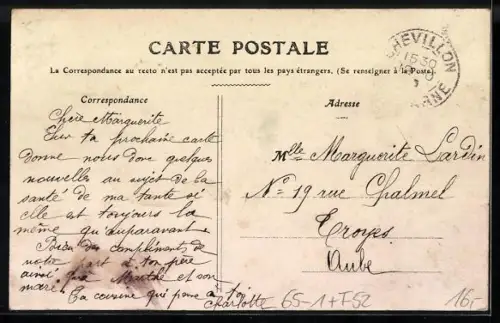 CARTE POSTALE
La Correspondance au recto n'est pas acceptée par tous les pays étrangers. (Se renseigner à la Poste)
CHEVILLON
1530
Correspondance
Chère Marguerite
Sur ta prochaine carte
donne nous donc quelques
nouvelles au sujet de la
santé de ma tante si
elle est toujours la
même qu'auparavant
Bien des compliments de
notre part à ton père
ainsi que Marthe et son
mari
Ta cousine qui pense à toi
Charlotte
Adresse
Mlle Marguerite Lardin
No 19 rue Chalmel
Troyes
Aube
65-1+T-52
16,-